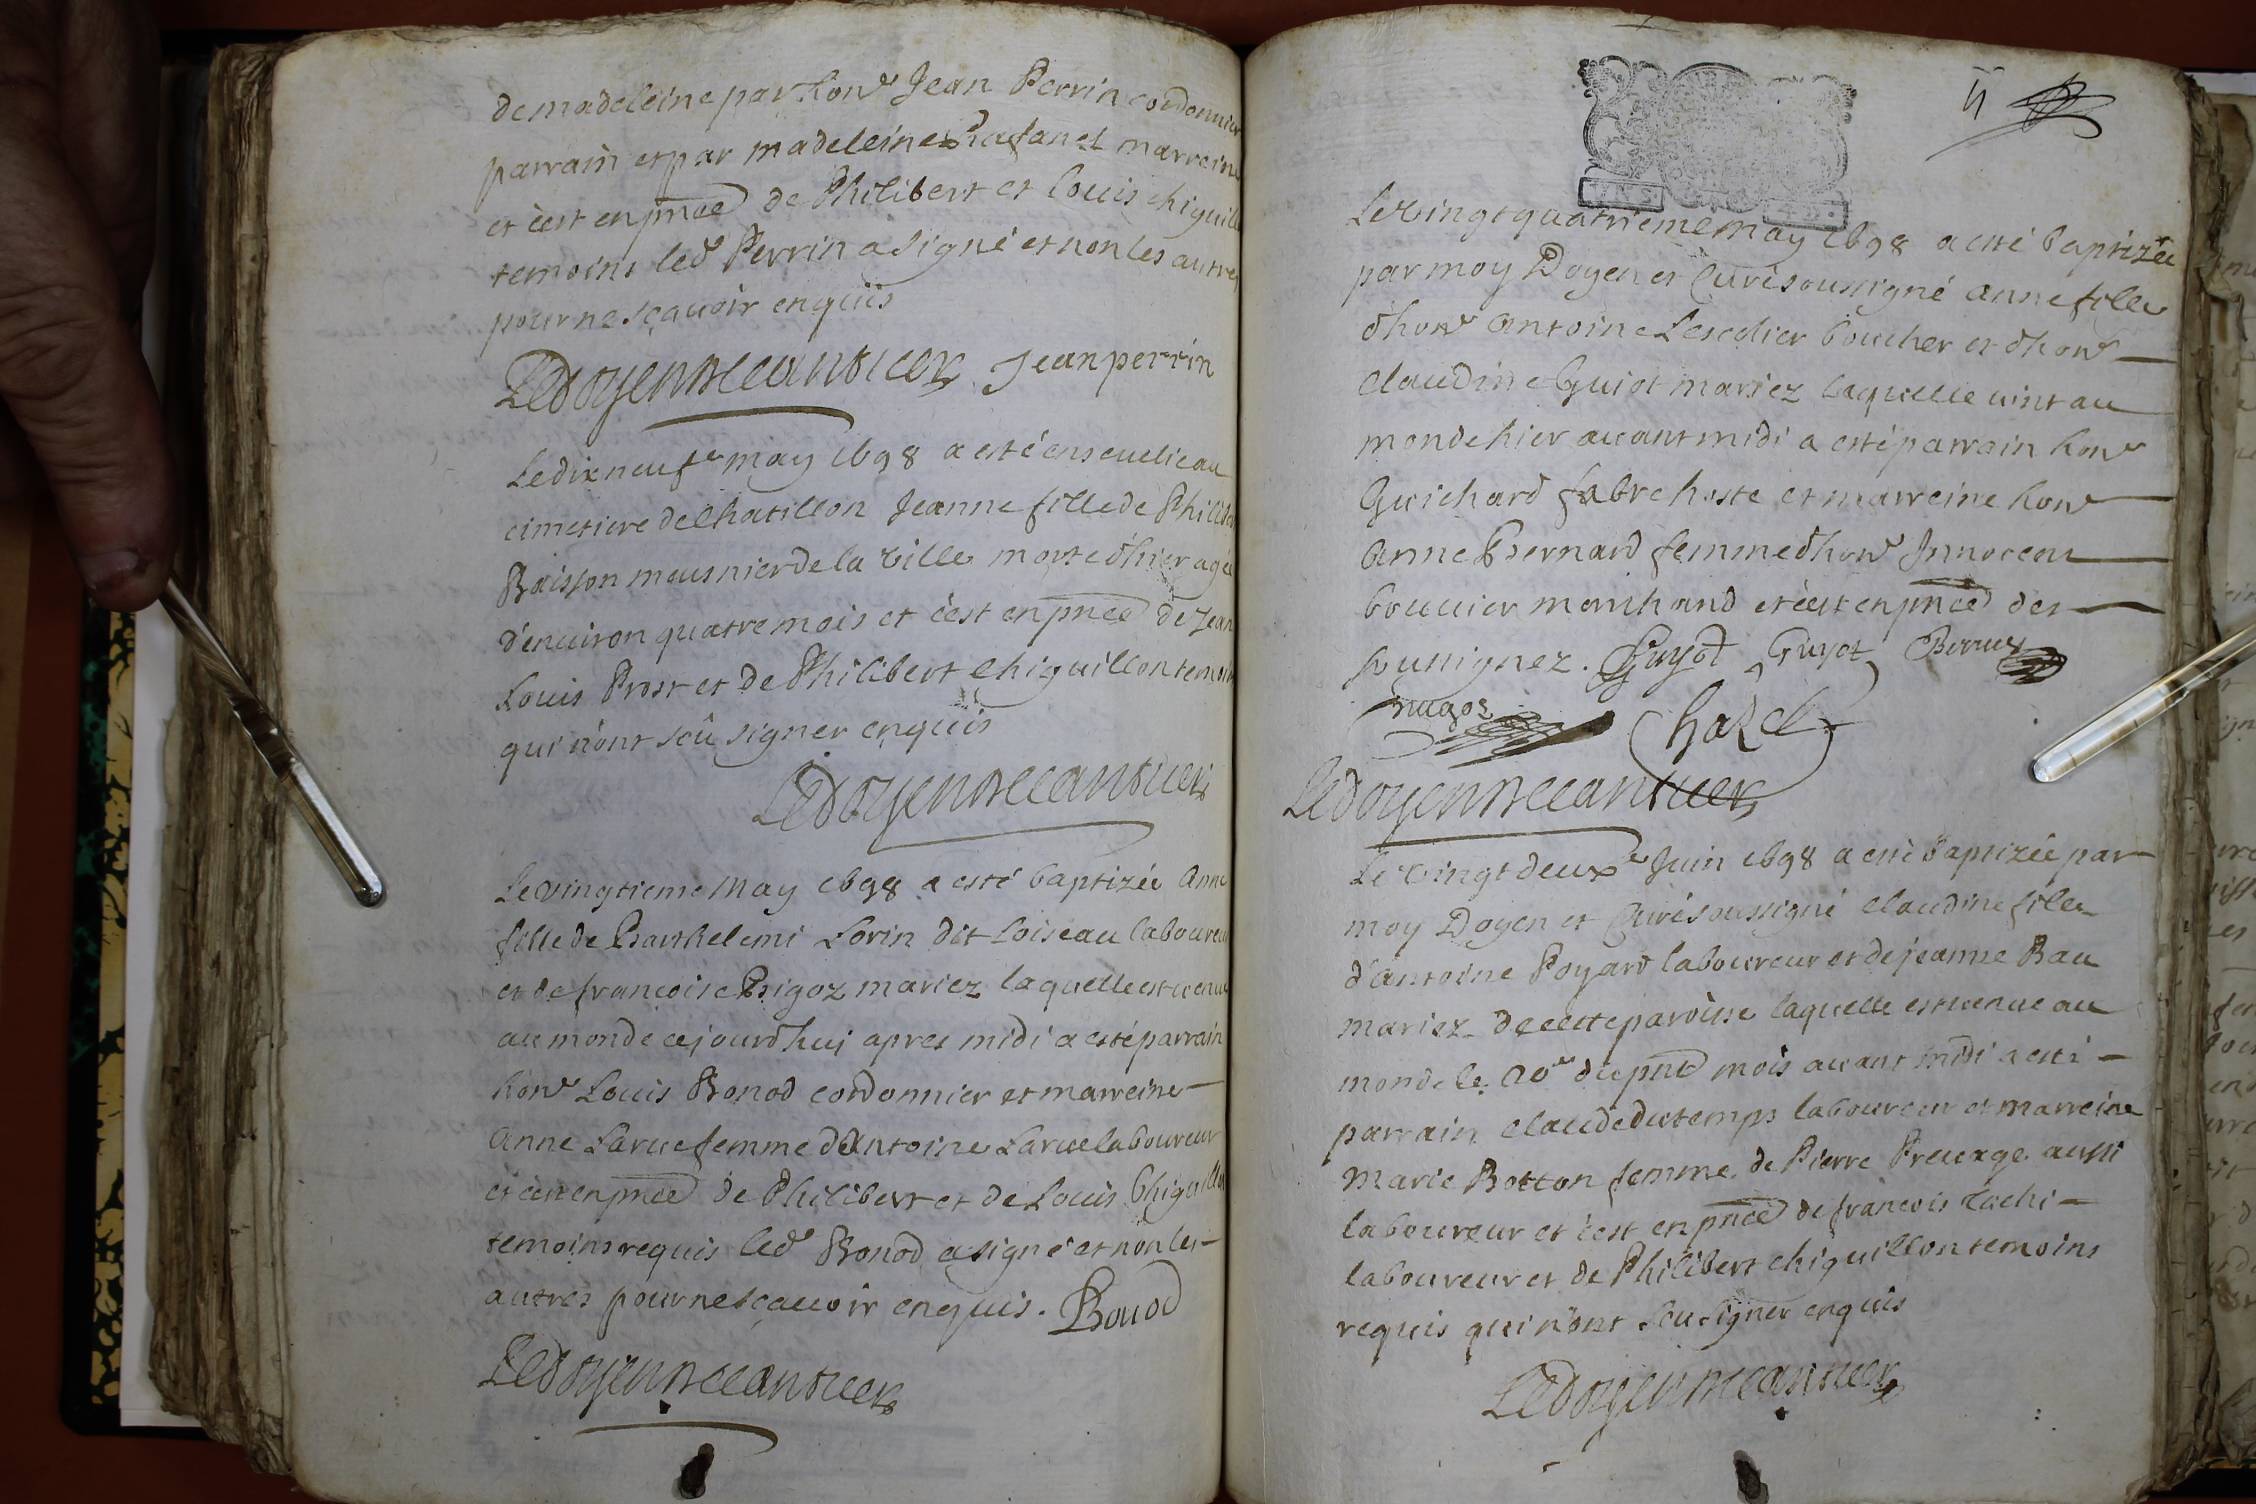 de madeleine par hon.e Jean Perrin cordonnier
parrain et par madeleine marreine
et c'est en pñce de Philibert et Louis chiguill
temoins led. Perrin a signé et non les autres
pour ne sçavoir enquis
Jean perrin
Le dix neuf.e may 1698 a esté enseueli eau
cimetiere de Chatillon Jeanne fille de Philib
Baisson meusnier de la ville morte d'hier agée
d'enuiron quatre mois et c'est en pñce de Jean
Louis Prost et de Philibert Chiguillon temoins
qui n'ont sceû signer enquis
Le vingtieme may 1698 a esté baptizée Anne
fille de Barthelemi Lorin dit Loiseau laboureur
et de francoise Brigoz mariez laquelle est uenue
au monde cejourd'huj apres midi a esté parrain
hon.e Louis Bonod cordonnier et marreine
Anne Larue femme d'Antoine Larue laboureur
et c'est en pñce de Philibert et de Louis Chiguillon
temoins requis led. Bonod a signé et non les
autres pour ne sçauoir enquis. Bonod
Le vingt quatrieme may 1698 a esté baptizée
par moy Doyen et Curé soussigné anne fille
d'hon.e antoine Lescolier boucher et d'hon.e
claudine Guiot mariez laquelle vint au
monde hier auant midi a esté parrain hon.e
Guichard fabre hoste et marreine hon.e
Anne Bernard femme d'hon.e Innocent
bouuier marchand et c'est en pñce des
sousignez. Guyot Guyot
Chazel
Le vingt deux.e Juin 1698 a esté baptizée par
moy Doyen et Curé soussigné claudine fille
d'antoine Poyard laboureur et de jeanne Bau
mariez de cette paroisse laquelle est uenue au
monde le 20.e du pñt mois auant midi a esté
parrain claude dutemps laboureur et marreine
Marie Botton femme de Pierre aussi
laboureur et c'est en pñce de francois Tachi
laboureur et de Philibert chiguillon temoins
requis qui n'ont sceu signer enquis